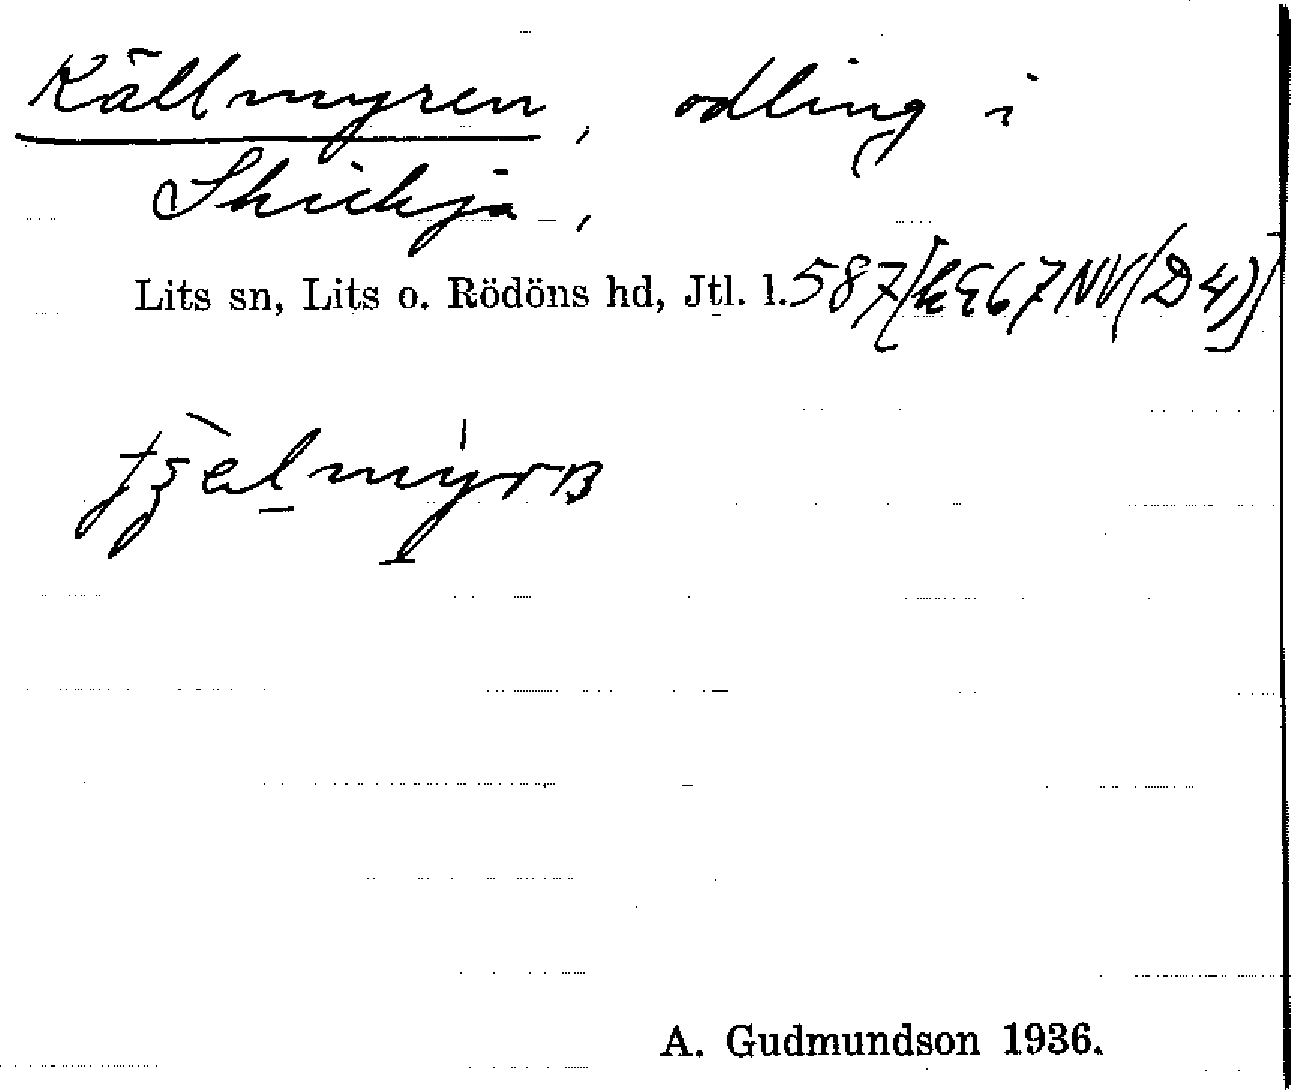 Källmyren, odling i
Skickja,
Lits sn, Lits o. Rödöns hd, Jtl. l. 587 [kE67NV(D4)]
A. Gudmundson 1936.